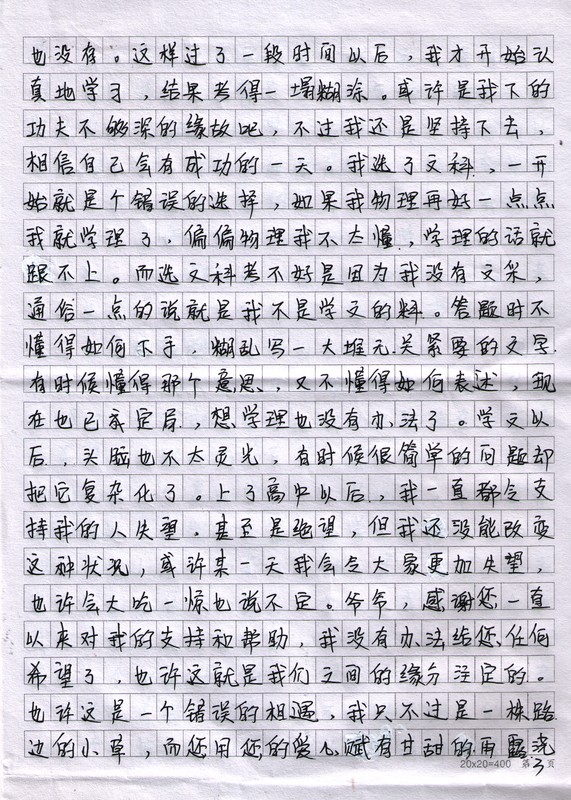 也没存。这样过了一段时间以后，我才开始认
真地学习，结果考得一塌糊涂。或许是我下的
功夫不够深的缘故吧，不过我还是坚持下去，
相信自己会有成功的一天。我选了文科，一开
始就是个错误的选择，如果我物理再好一点点
我就学理了，偏偏物理我不太懂，学理的话就
跟不上。而选文科考不好是因为我没有文采，
通俗一点的说就是我不是学文的料。答题时不
懂得如何下手，糊乱写一大堆无关紧要的文字.
有时候懂得那个意思，又不懂得如何表述，现
在也已成定局，想学理也没有办法了。学文以
后，头脑也不太灵光，有时候很简单的问题却
把它复杂化了。上了高中以后，我一直都令支
持我的人失望，甚至是绝望，但我还没能改变
这种状况，或许某一天我会令大家更加失望，
也许会大吃一惊也说不定。爷爷，感谢您一直
以来对我的支持和帮助，我没有办法给您任何
希望了，也许这就是我们之间的缘分注定的。
也许这是一个错误的相遇，我只不过是一株路
边的小草，而您用您的爱心赋有甘甜的雨露浇
20x20=400 第3页